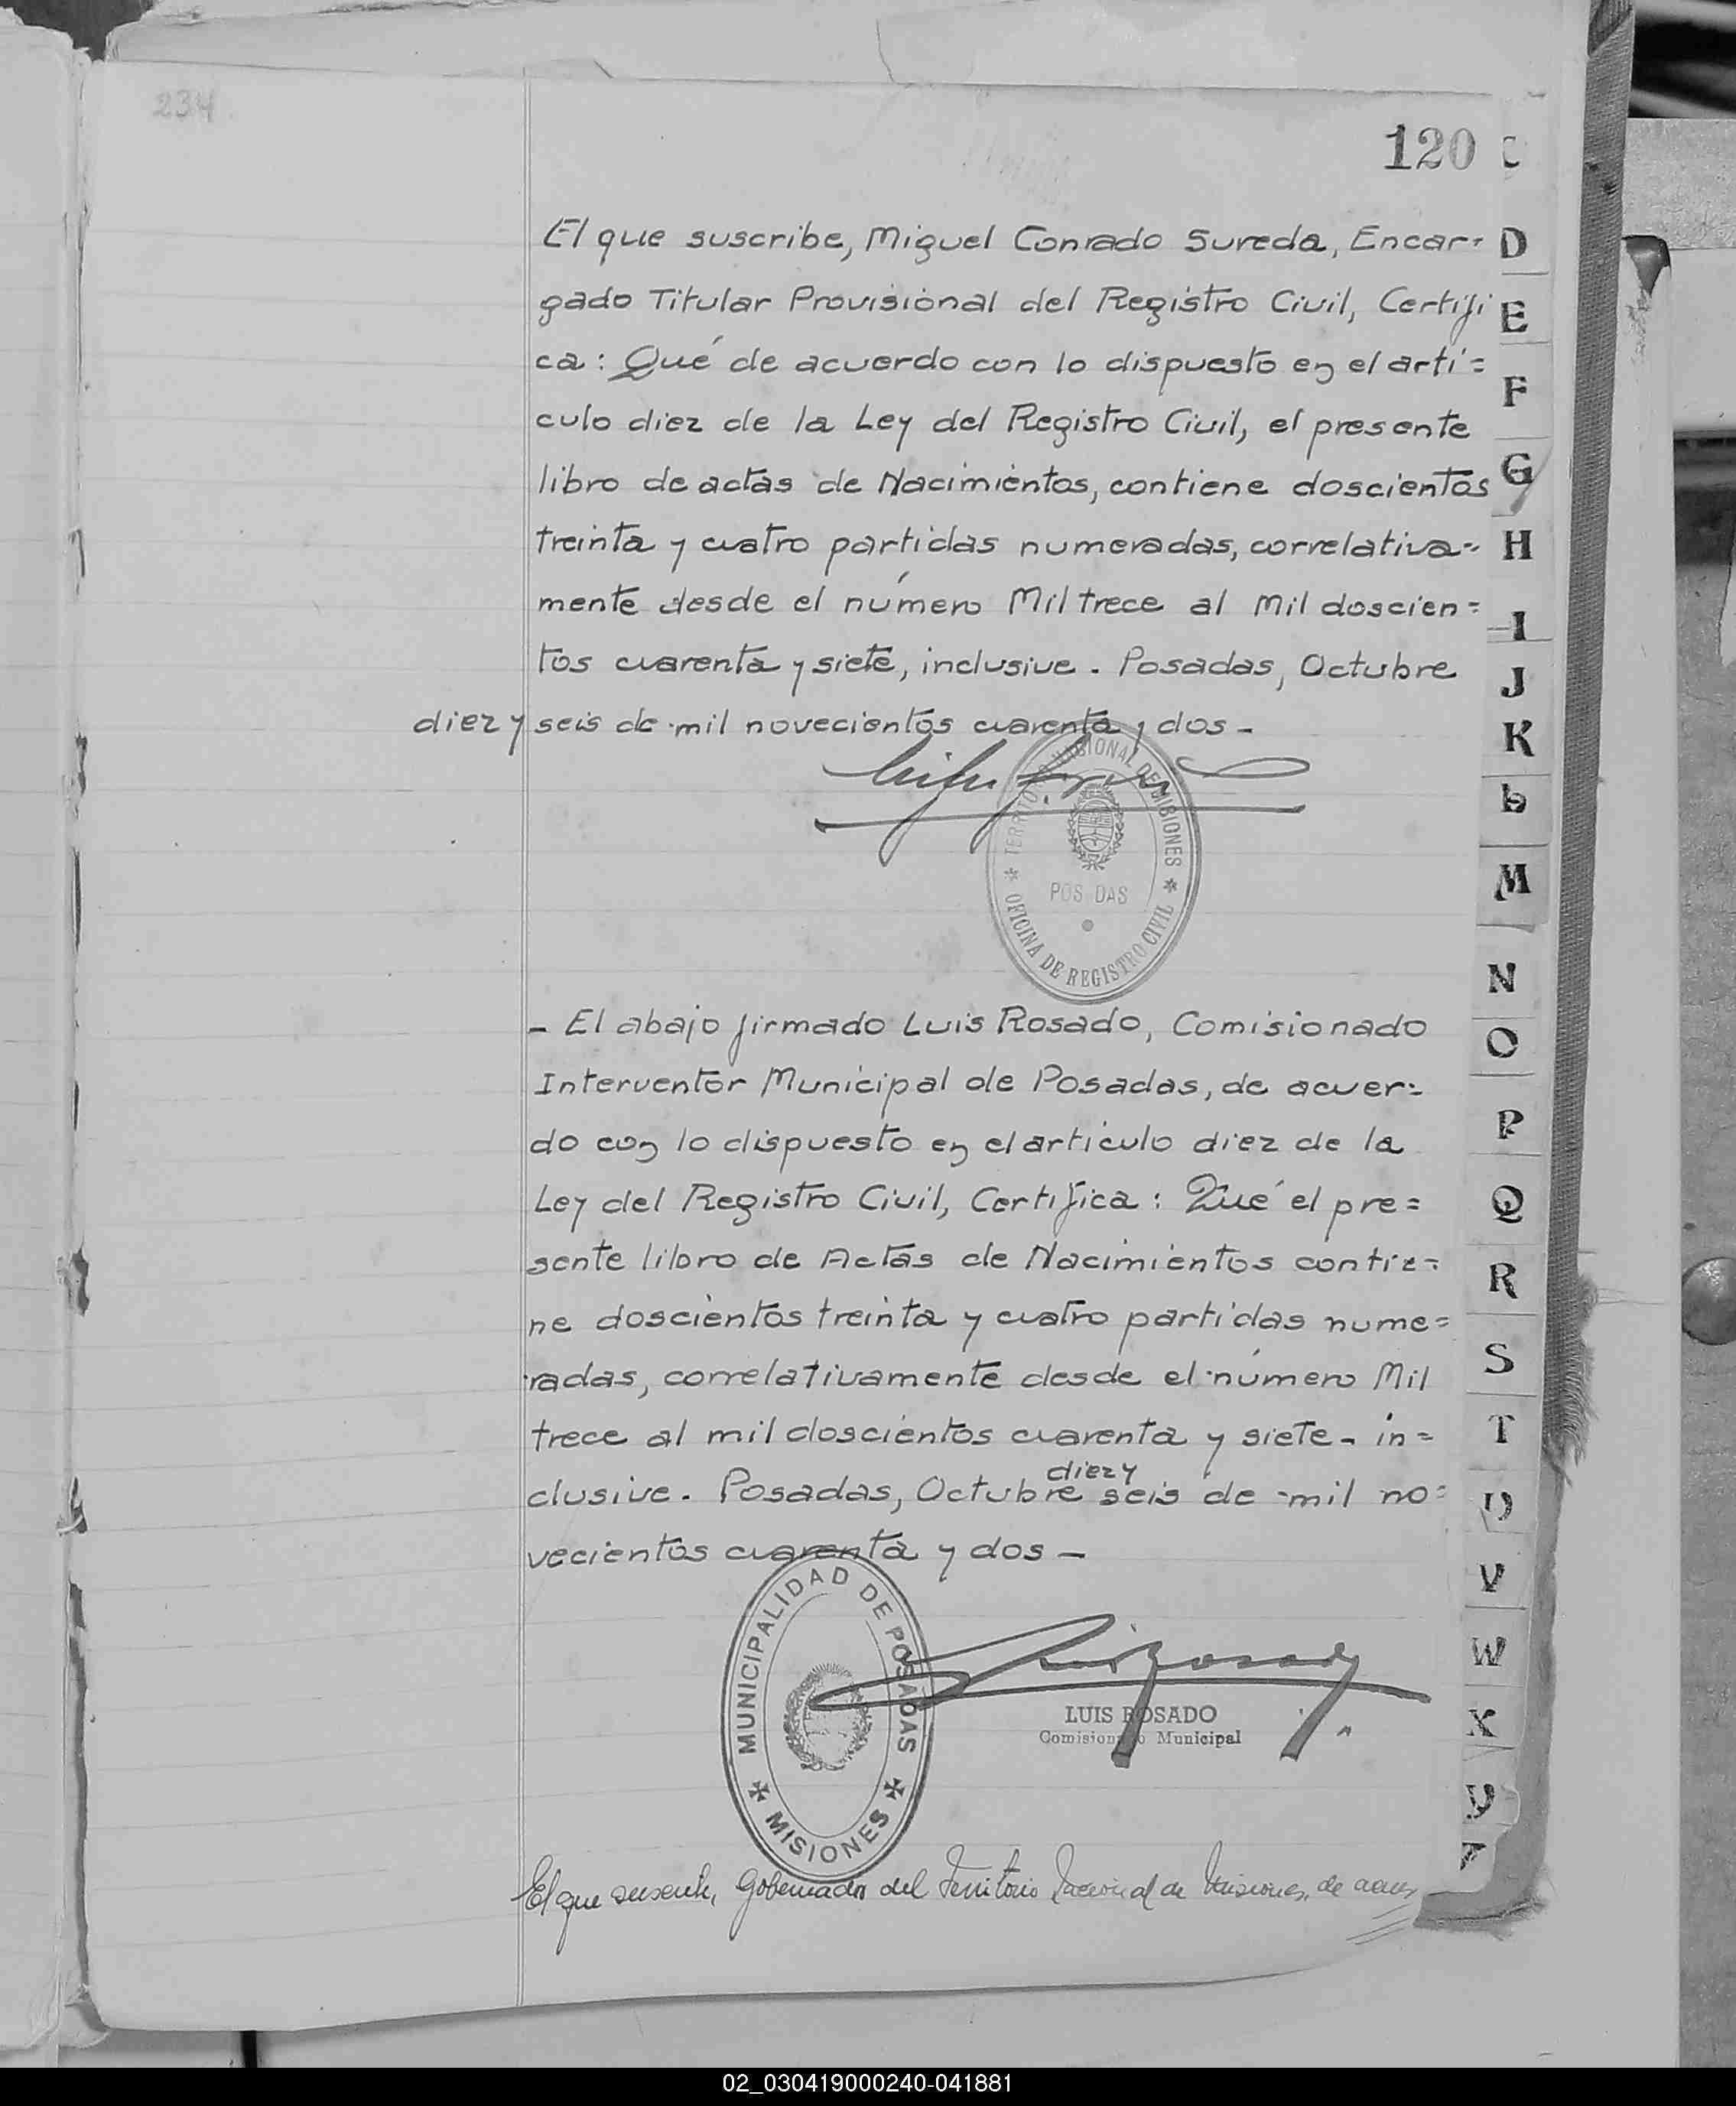 234
120
C
El que suscribe, Miguel Conrado Sureda, Encar-
gado Titular Provisional del Registro Civil, Certifi
ca: Qué de acuerdo con lo dispuesto en el arti=
culo diez de la Ley del Registro Civil, el presente
libro de actas de Nacimientos, contiene doscientos
treinta y cuatro partidas numeradas, correlativa=
mente desde el número Mil trece al mil doscien=
tos cuarenta y siete, inclusive. Posadas, Octubre
diez y seis de mil novecientos cuarenta y dos -
TERRITORIO NACIONAL DE MISIONES
POSADAS
OFICINA DE REGISTRO CIVIL
- El abajo firmado Luis Rosado, Comisionado
Interventor Municipal de Posadas, de acuer=
do con lo dispuesto en el articulo diez de la
Ley del Registro Civil, Certifica: Qué el pre=
sente libro de Actas de Nacimientos contie=
ne doscientos treinta y cuatro partidas nume=
radas, correlativamente desde el número Mil
trece al mil doscientos cuarenta y siete - in=
diez y
clusive. Posadas, Octubre seis de mil no=
vecientos cuarenta y dos -
MUNICIPALIDAD DE POSADAS
MISIONES
Luis Rosado
LUIS ROSADO
Comisionado Municipal
El que suscribe, Gobernador del Territorio Nacional de Misiones, de acuer
D
E
F
G
H
I
J
K
L
M
N
O
P
Q
R
S
T
U
V
W
X
Y
Z
02_030419000240-041881